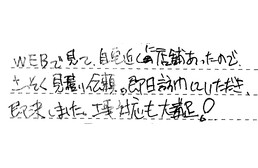 WEBで見て、自宅近くに店舗あったので、
さっそく見積り依頼。即日訪問していただき、
即決しました。工事対応も大満足!